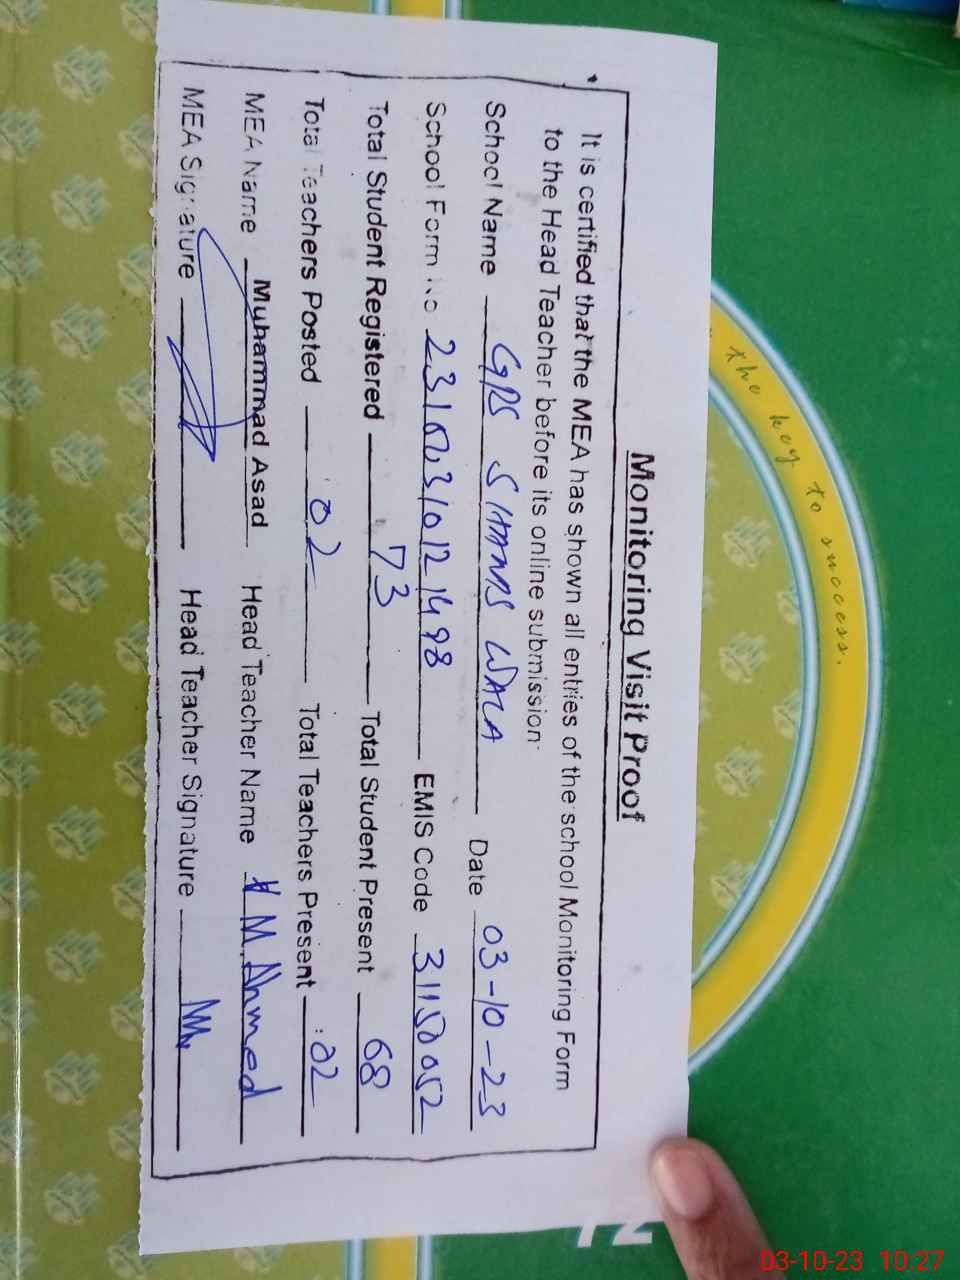 Monitoring Visit Proof
It is certified that the MEA has shown all entries of the school Monitoring Form
to the Head Teacher before its online submission.
School Name GPS SHAMAS WALA Date 03-10-23
School Form No 2310031012 1498 EMIS Code 31150052
Total Student Registered 73 Total Student Present 68
Total Teachers Posted 02 Total Teachers Present 02
MEA Name Muhammad Asad Head Teacher Name M. Ahmed
MEA Signature Head Teacher Signature
the key to success.
03-10-23 10:27